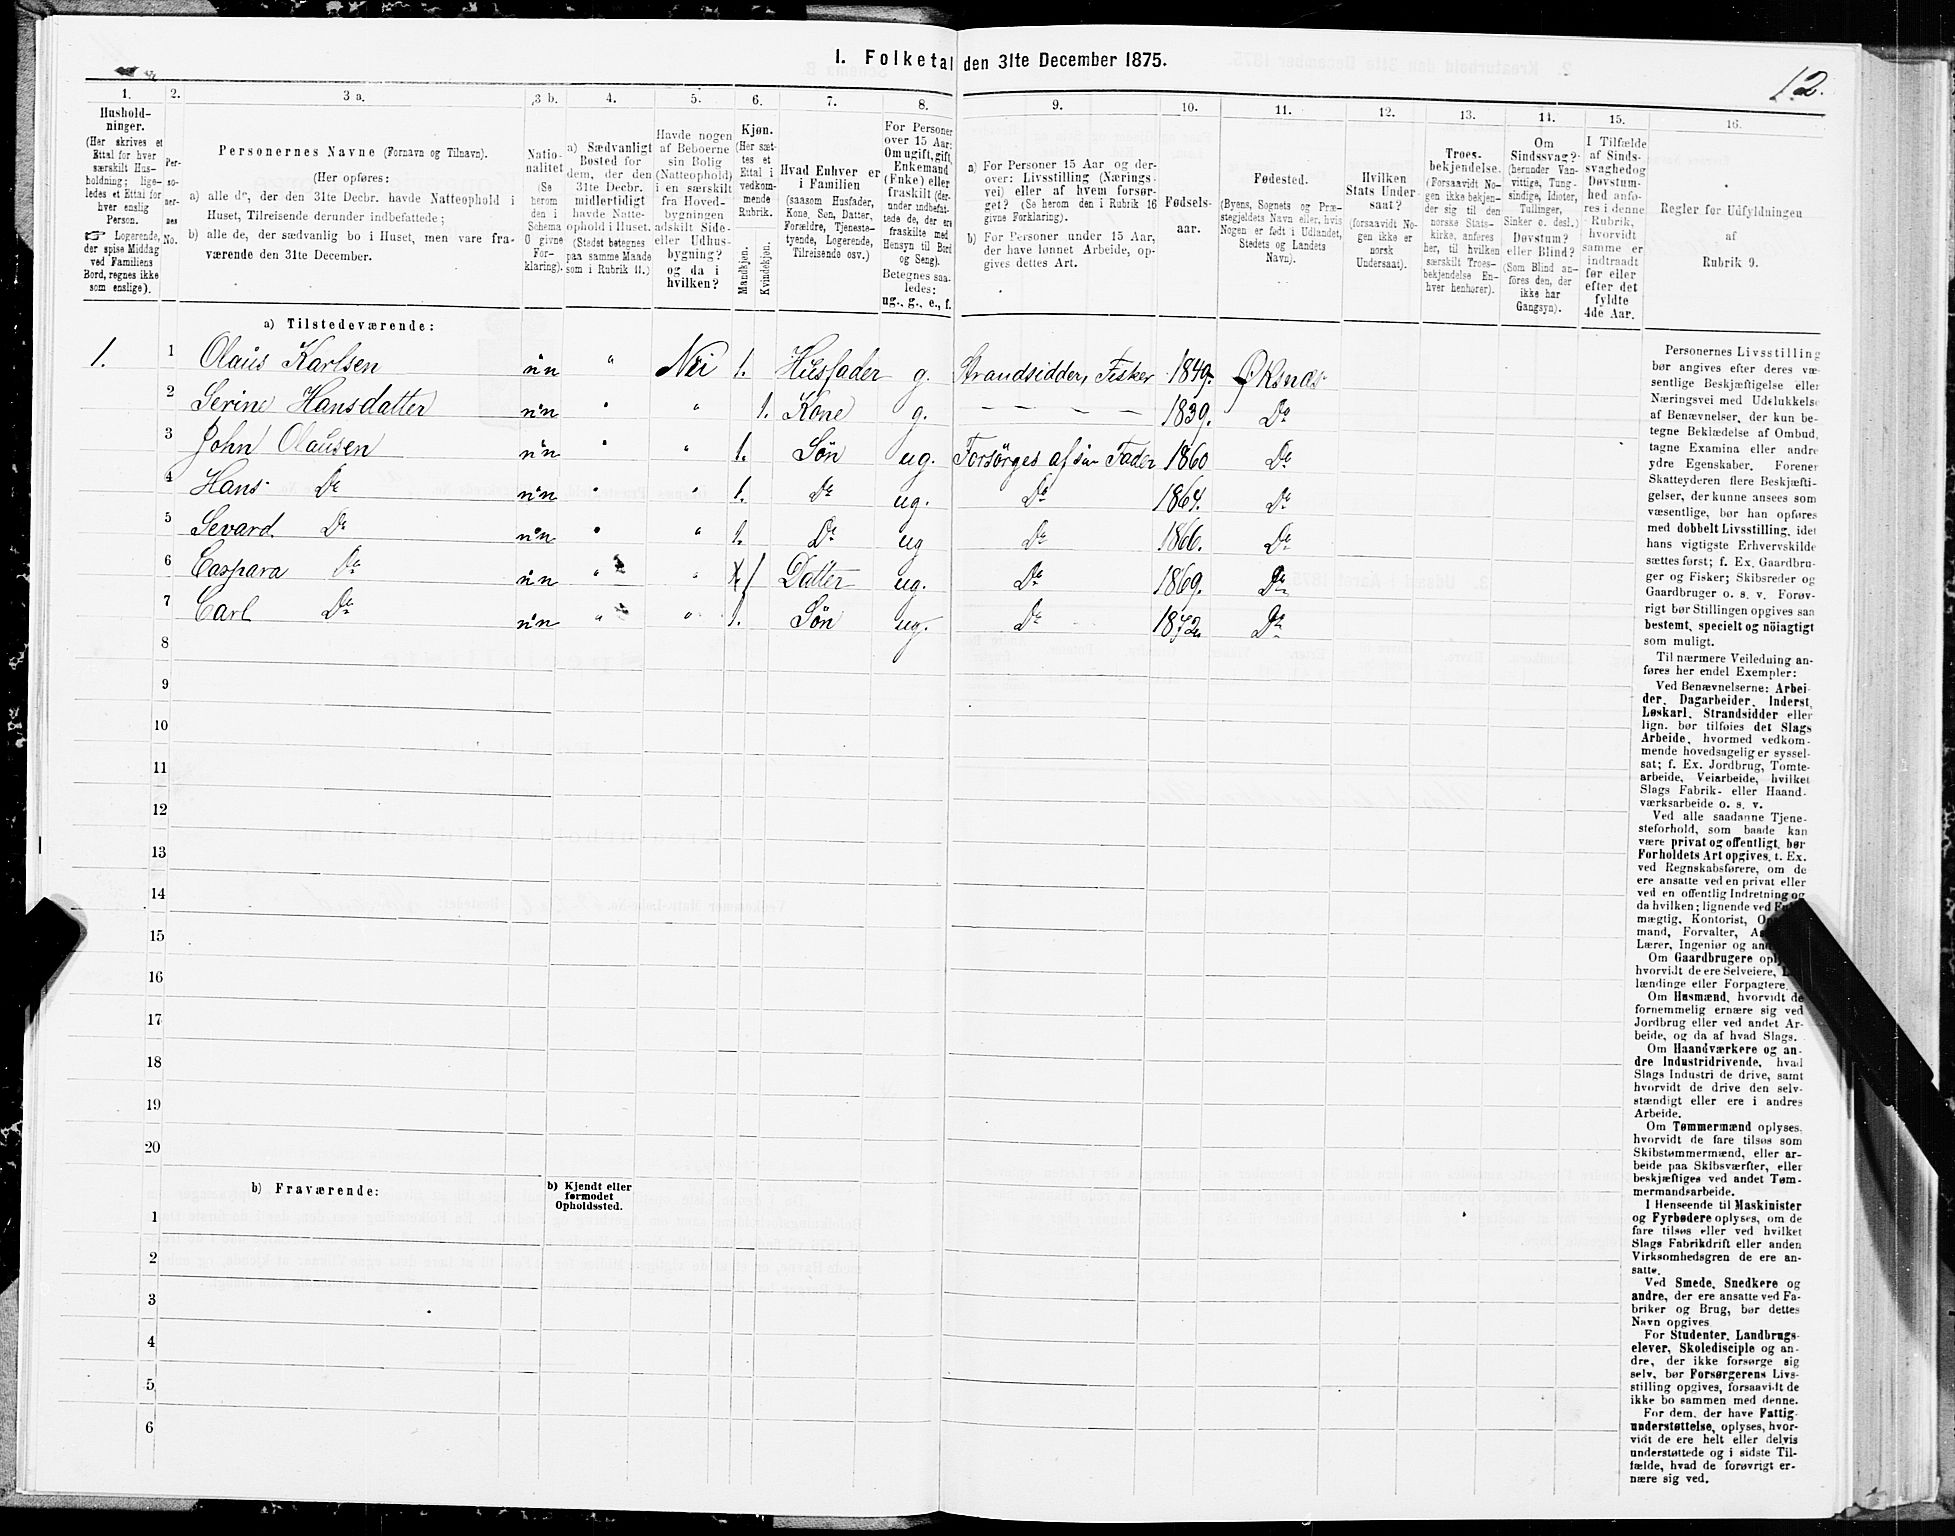 I. Folketal den 31te December 1875.
12.
1.
Hushold-
ninger.
(Her skrives et
Ettal for hver
særskilt Hus-
holdning; lige-
ledes et Ettal for
hver enslig
Person.
☞ Logerende,
der spise Middag
ved Familiens
Bord, regnes ikke
som enslige).
2.
Per-
so-
ner-
nes
No.
3 a.
Personernes Navne (Fornavn og Tilnavn).
(Her opføres:
a) alle de, der den 31te Decbr. havde Natteophold i
Huset, Tilreisende derunder indbefattede;
b) alle de, der sædvanlig bo i Huset, men vare fra-
værende den 31te December.
3 b.
Natio-
nalitet
(Se
herom
den i
Schema
O givne
For-
klaring).
4.
a) Sædvanligt
Bosted for
dem, der den
31te Decbr.
midlertidigt
havde Natte-
ophold i Huset.
(Stedet betegnes
paa samme Maade
som i Rubrik 11.)
5.
Havde nogen
af Beboerne
sin Bolig
(Natteophold)
i en særskilt
fra Hoved-
bygningen
adskilt Side-
eller Udhus-
bygning?
og da i
hvilken?
6.
Kjøn.
(Her sæt-
tes et
Ettal i
vedkom-
mende
Rubrik.
Mandkjøn.
Kvindekjøn.
7.
Hvad Enhver er
i Familien
(saasom Husfader,
Kone, Søn, Datter,
Forældre, Tjeneste-
tyende, Logerende,
Tilreisende osv.)
8.
For Personer
over 15 Aar:
Om ugift, gift,
Enkemand
(Enke) eller
fraskilt (der-
under indbefat-
tede de, der ere
fraskilte med
Hensyn til Bord
og Seng).
Betegnes saa-
ledes:
ug., g., e., f.
9.
a) For Personer 15 Aar og der-
over: Livsstilling (Nærings-
vei) eller af hvem forsør-
get? (Se herom den i Rubrik 16
givne Forklaring).
b) For Personer under 15 Aar,
der have lønnet Arbeide, op-
gives dettes Art.
10.
Fødsels-
aar.
11.
Fødested.
(Byens, Sognets og Præ-
stegjeldets Navn eller, hvis
Nogen er født i Udlandet,
Stedets og Landets
Navn).
12.
Hvilken
Stats Under-
saat?
(forsaavidt No-
gen ikke er
norsk
Undersaat).
13.
Troes-
bekjendelse.
(Forsaavidt No-
gen ikke bekjen-
der sig til den
norske Stats-
kirke, anføres
her, til hvilken
særskilt Troes-
bekjendelse En-
hver henhører).
14.
Om
Sindssvag?
(herunder Van-
vittige, Tung-
sindige, Idioter,
Tullinger,
Sinker o. desl.).
Døvstum?
eller Blind?
(Som Blind an-
føres den, der
ikke har
Gangsyn).
15.
I Tilfælde
af Sinds-
svaghed og
Døvstum-
hed anfø-
res i denne
Rubrik,
hvorvidt
samme er
indtraadt
før eller
efter det
fyldte
4de Aar.
16.
Regler før Udfyldningen
af
Rubrik 9.
a) Tilstedeværende:
1. 1 Olaus Karlsen n.n " Nei 1. Husfader g. Strandsidder, Fisker 1849. Øksnæs
2 Serine Hansdatter n.n " " 1. Kone g. — — — — 1839. Do
3 John Olausen n.n " " 1. Søn ug. Forsørges af sin Fader 1860 Do
4 Hans Do n.n " " 1. Do ug. Do 1864. Do
5 Sevard Do n.n " " 1. Do ug Do 1866. Do
6 Caspara Do n.n " " 1 Datter ug. Do 1869. Do
7 Carl Do n.n " " 1. Søn ug. Do 1872. Do
8
9
10
11
12
13
14
15
16
17
18
19
20
b) Fraværende:
b) Kjendt eller
formodet
Opholdssted.
1
2
3
4
5
6
Personernes Livsstilling
bør angives efter deres væ-
sentlige Beskjæftigelse eller
Næringsvei med Udelukkelse
af Benævnelser, der kun be-
tegne Beklædelse af Ombud,
tagne Examina eller andre
ydre Egenskaber. Forener
Skatteyderen flere Beskjæfti-
gelser, der kunne ansees som
væsentlige, bør han opføres
med dobbelt Livsstilling, idet
hans vigtigste Erhvervskilde
sættes først; f. Ex. Gaardbru-
ger og Fisker; Skibsreder og
Gaardbruger o. s. v. Forøv-
rigt bør Stillingen opgives saa
bestemt, specielt og nöiagtigt
som muligt.
Til nærmere Veiledning an-
føres her endel Exempler:
Ved Benævnelserne: Arbei-
der, Dagarbeider, Inderst,
Løskarl, Strandsidder eller
lign. bør tilføies det Slags
Arbeide, hvormed vedkom-
mende hovedsagelig er syssel-
sat; f. Ex. Jordbrug, Tomte-
arbeide, Veiarbeide, hvilket
Slags Fabrik- eller Haand-
værksarbeide o. s. v.
Ved alle saadanne Tjene-
steforhold, som baade kan
være privat og offentligt, bør
Forholdets Art opgives, t. Ex.
ved Regnskabsførere, om de
ere ansatte ved en privat eller
ved en offentlig Indretning og
da hvilken; lignende ved
mægtig, Kontorist,
mand, Forvalter,
Lærer, Ingeniør og
Om Gaardbrugere
hvorvidt de ere Selveiere,
lændinge eller Forpagtere.
Om Husmænd, hvorvidt de
fornemmelig ernære sig ved
Jordbrug eller ved andet Ar-
beide, og da af hvad Slags.
Om Haandværkere og an-
dre Industridrivende, hvad
Slags Industri de drive, samt
hvorvidt de drive den selv-
stændigt eller ere i andres
Arbeide.
Om Tømmermænd oplyses,
hvorvidt de fare tilsøs som
Skibstømmermænd, eller ar-
beide paa Skibsværfter, eller
beskjæftiges ved andet Tøm-
mermandsarbeide.
I Henseende til Maskinister
og Fyrbødere oplyses, om de
fare tilsøs eller ved hvilket
Slags Fabrikdrift eller anden
Virksomhedsgren de ere an-
satte.
Ved Smede, Snedkere og
andre, der ere ansatte ved Fa-
briker og Brug, bør dettes
Navn opgives.
For Studenter, Landbrugs-
elever, Skoledisciple og an-
dre, der ikke forsørge sig
selv, bør Forsørgerens Livs-
stilling opgives, forsaavidt de
ikke bo sammen med denne.
For dem, der have Fattig-
understøttelse, oplyses, hvor-
vidt de ere helt eller delvis
understøttede og i sidste Til-
fælde, hvad de forøvrigt er-
nære sig ved.